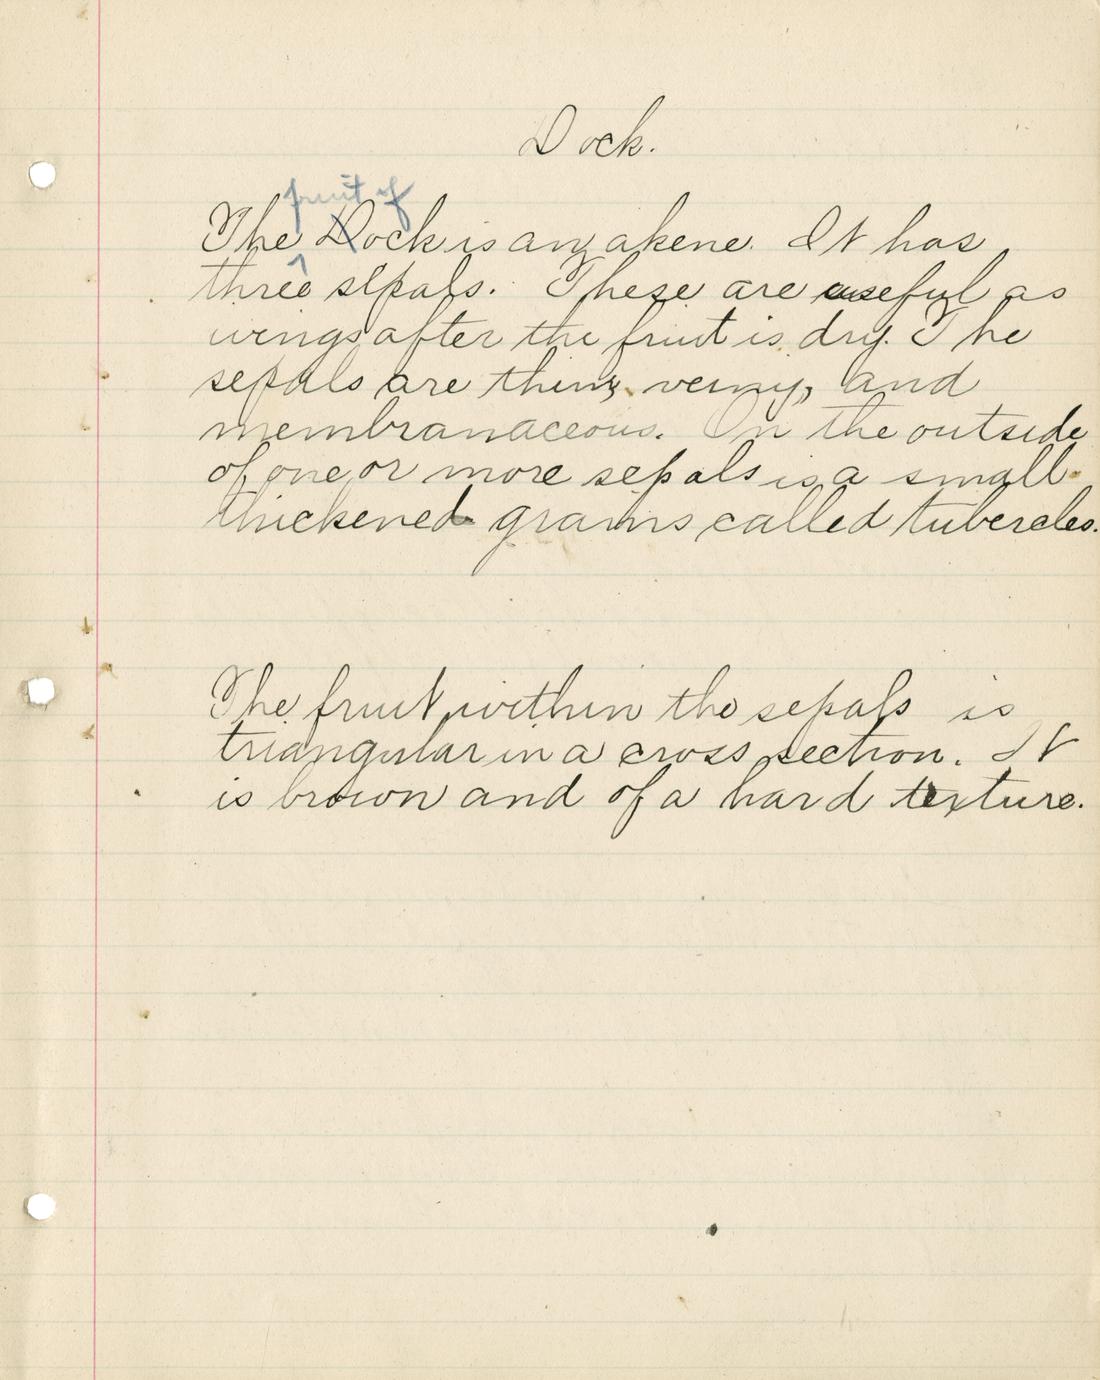 Dock.
fruit of
The Dock is any akene. It has
three sepals. These are useful as
wings after the fruit is dry. The
sepals are thin, veiny, and
membranaceous. On the outside
of one or more sepals is a small
thickened grains called tubercles.
The fruit within the sepals is
triangular in a cross section. It
is brown and of a hard texture.